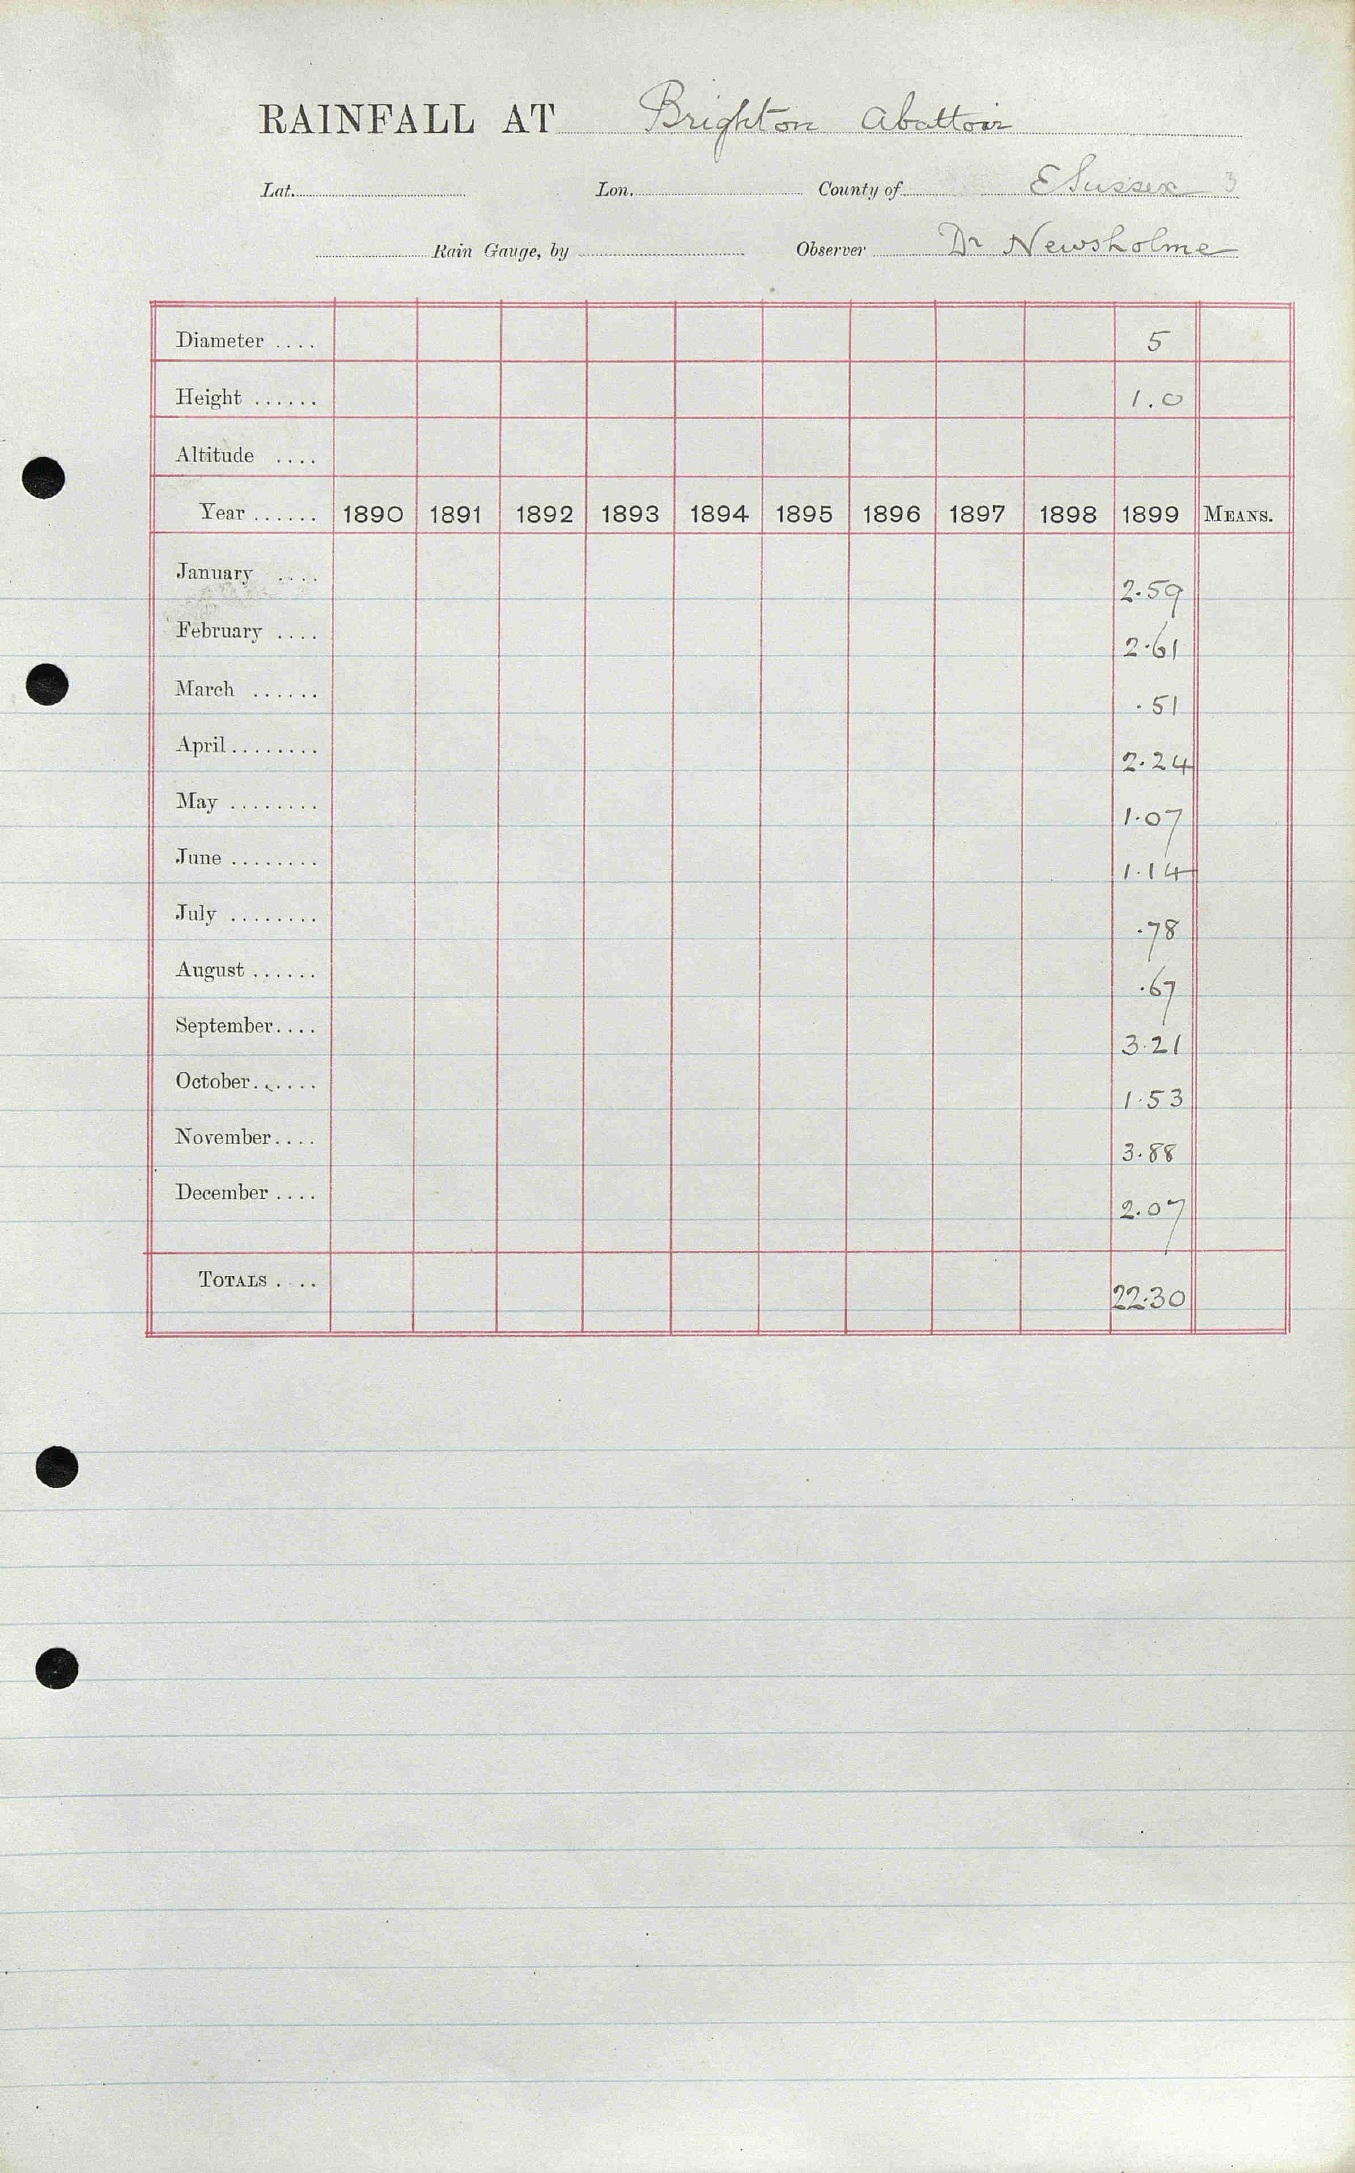 RAINFALL AT Brighton Abattoir
Lat. Lon. County of E Sussex 3
Rain Gauge, by Observer Dr Newsholme
Diameter .... 5
Height ...... 1.0
Altitude ....
Year ...... 1890 1891 1892 1893 1894 1895 1896 1897 1898 1899 MEANS.
January .... 2.59
February .... 2.61
March ...... .51
April ........ 2.24
May ........ 1.07
June ........ 1.14
July ........ .78
August ...... .67
September.... 3.21
October...... 1.53
November.... 3.88
December .... 2.07
TOTALS .... 22.30